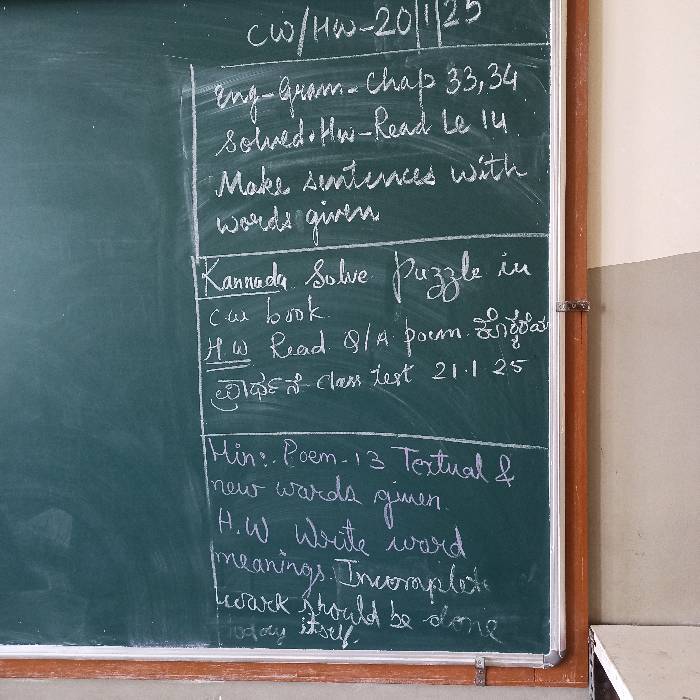 CW/HW-20/1/25
Eng-Gram- Chap 33,34
Solved. Hw-Read Le 14
Make sentences with
words given
Kannada Solve Puzzle in
cw book.
H.W Read Q/A poem.
ಪ್ರಾರ್ಥನೆ- class test 21.1 25
Hin:. Poem-13 Textual &
new words given.
H.W Write word
meanings. Incomplete
work should be done
today itself